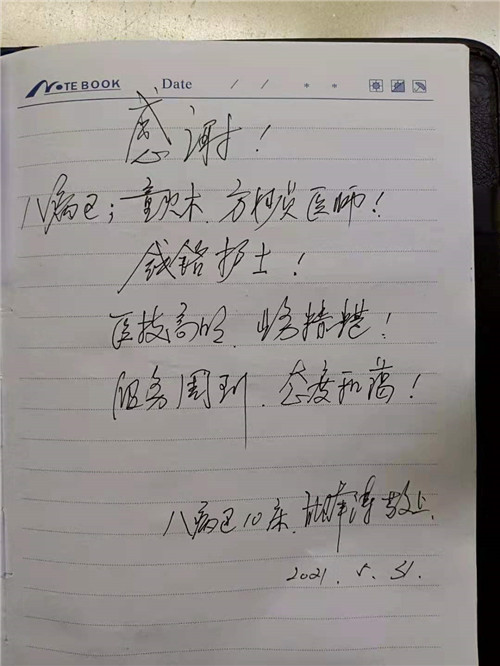 NOTEBOOK Date / / * *
感谢！
八病区；童欢木、方 医师！
钱铭护士！
医技高明、 精堪！
服务周到、态度和蔼！
八病区10床、 敬上、
2021.5.31.